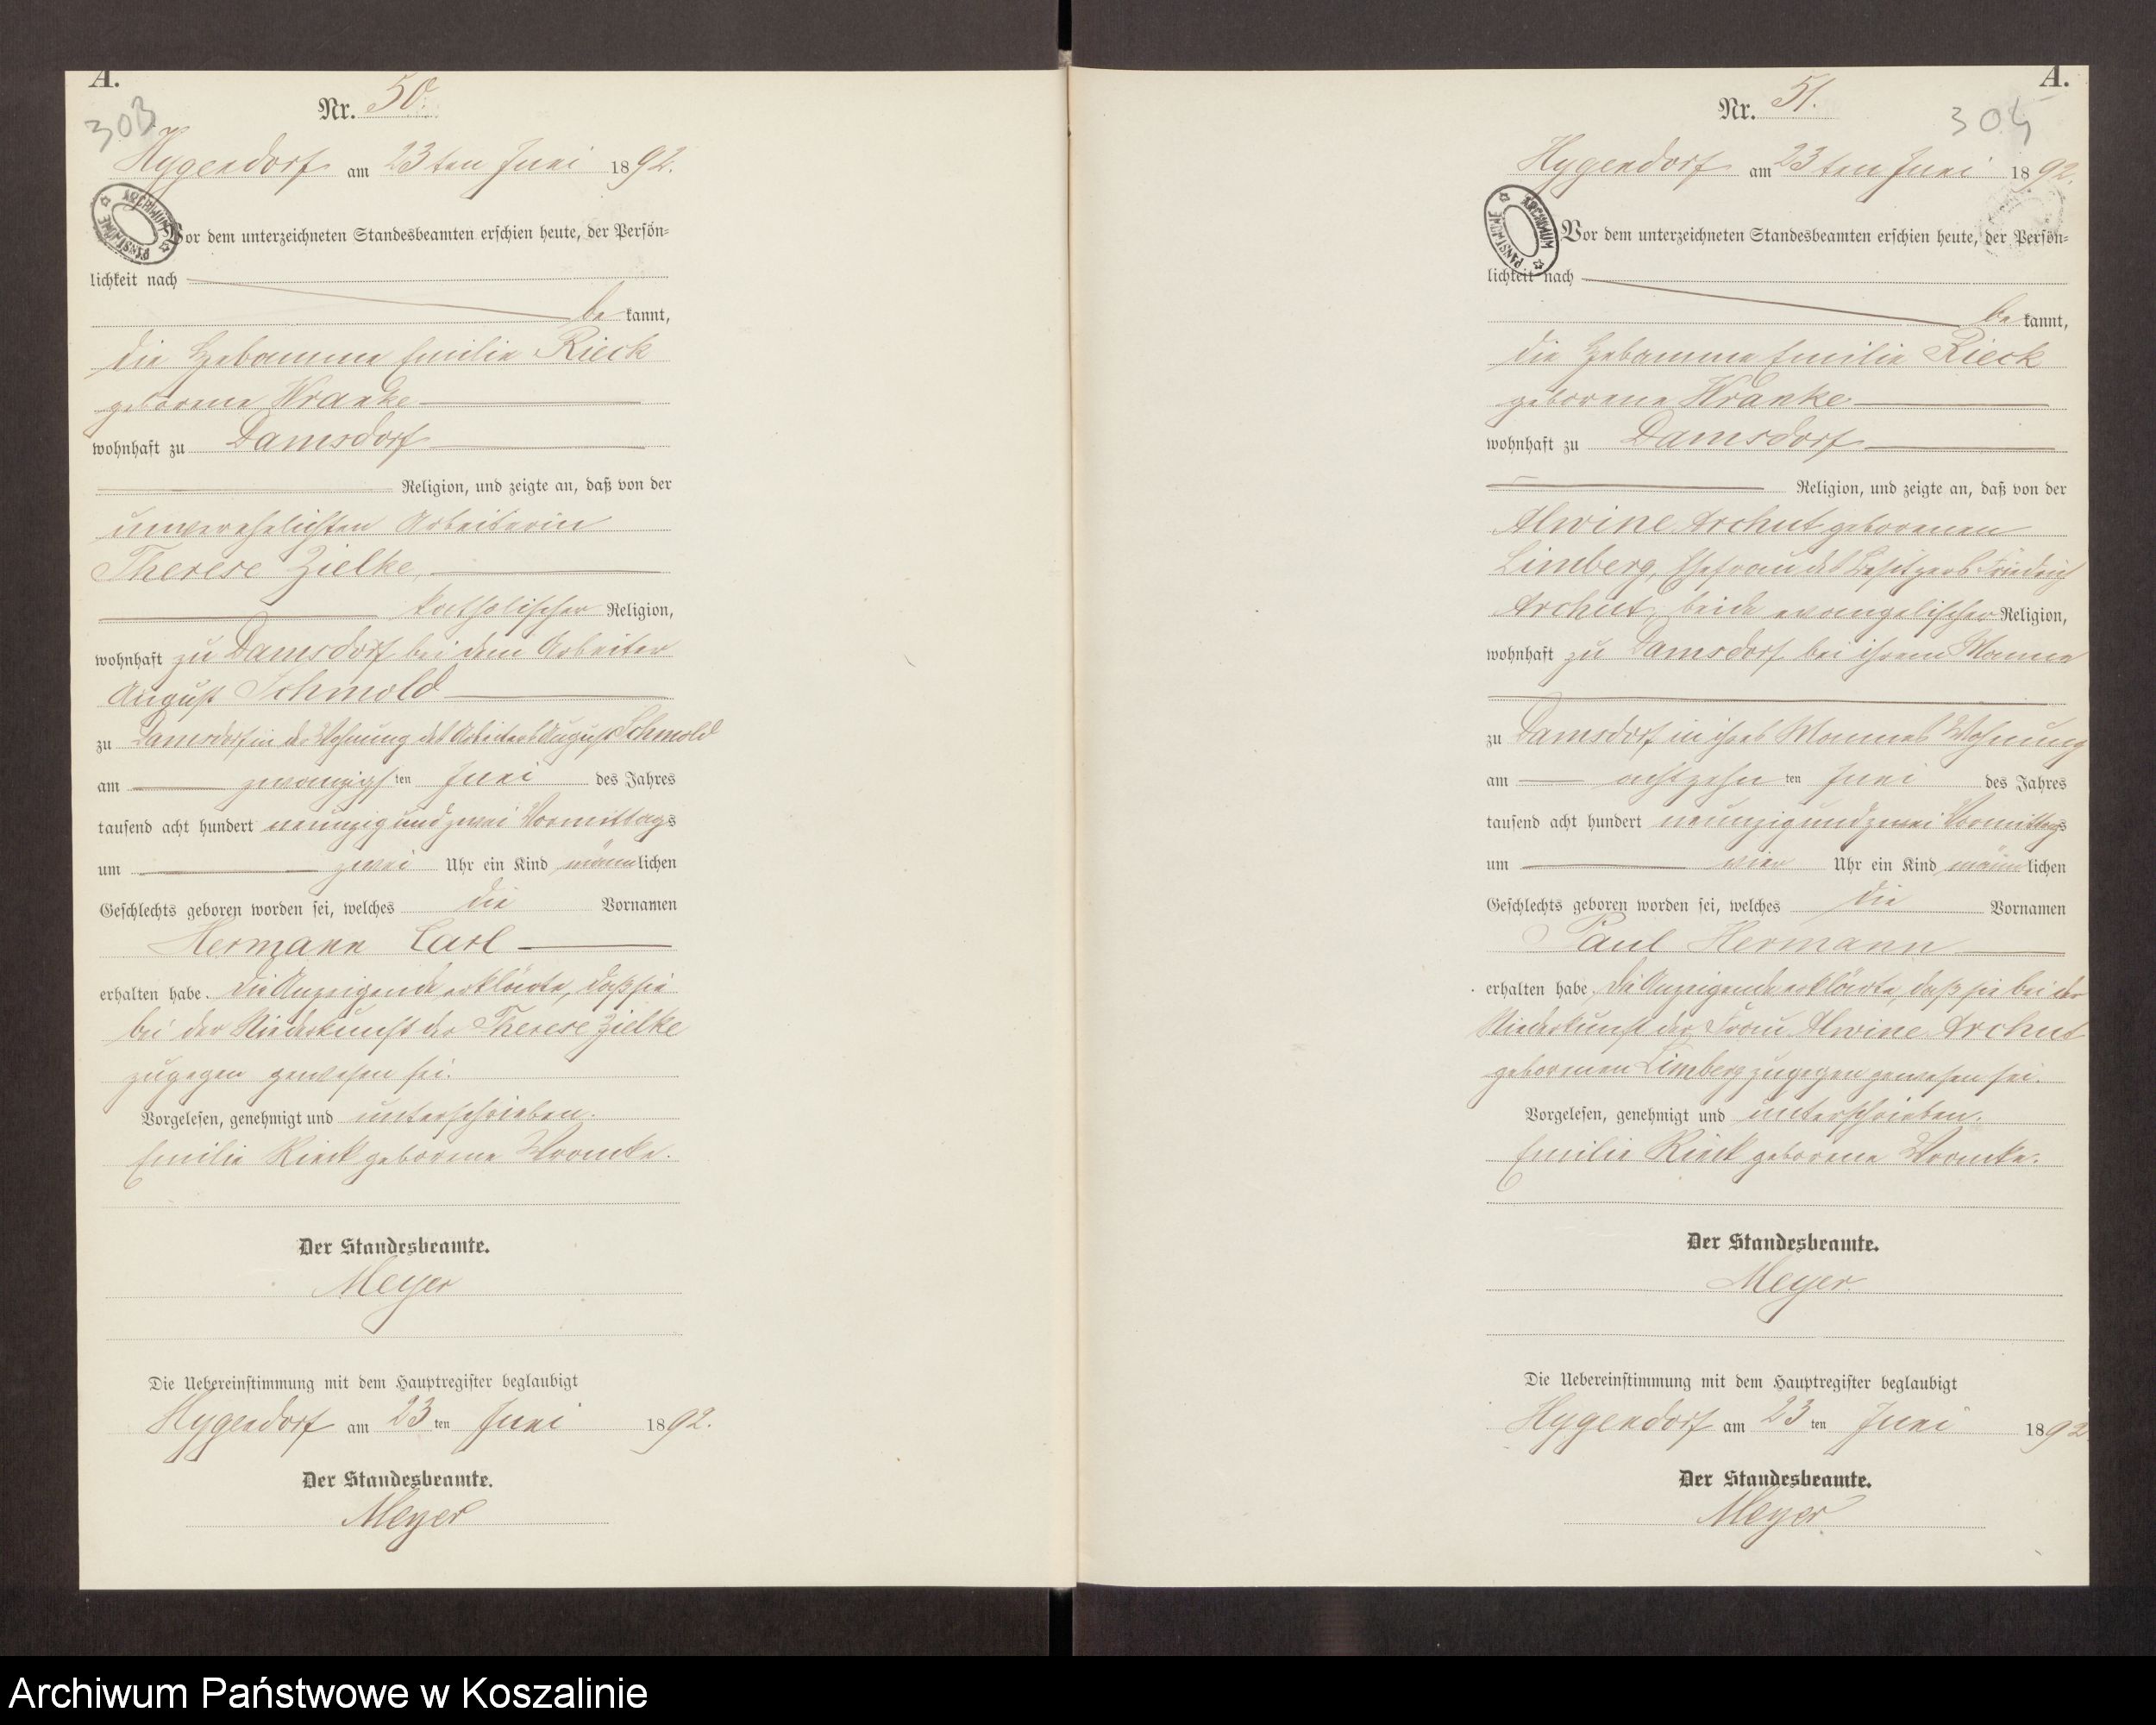 A.
303
Nr. 50.
Hygendorf am 23ten Juni 1892.
ARCHIWUM PAŃSTWOWE
Vor dem unterzeichneten Standesbeamten erschien heute, der Persön-
lichkeit nach
be kannt,
die Hebamme Emilie Rieck
geborene Wranke
wohnhaft zu Damsdorf
Religion, und zeigte an, daß von der
unverehelichten Arbeiterin
Therese Zielke,
katholischer Religion,
wohnhaft zu Damsdorf bei dem Arbeiter
August Schmold
zu Damsdorf in der Wohnung des Arbeiters August Schmold
am zwanzigsten Juni des Jahres
tausend acht hundert neunzig und zwei Vormittags
um zwei Uhr ein Kind männlichen
Geschlechts geboren worden sei, welches die Vornamen
Hermann Carl
erhalten habe. Die Anzeigende erklärte, daß sie
bei der Niederkunft der Therese Zielke
zugegen gewesen sei.
Vorgelesen, genehmigt und unterschrieben.
Emilie Rieck geborene Wranke.
Der Standesbeamte.
Meyer
Die Uebereinstimmung mit dem Hauptregister beglaubigt
Hygendorf am 23 ten Juni 1892.
Der Standesbeamte.
Meyer
A.
Nr. 51.
304
Hygendorf am 23ten Juni 1892.
ARCHIWUM PAŃSTWOWE
Vor dem unterzeichneten Standesbeamten erschien heute, der Persön-
lichkeit nach
be kannt,
die Hebamme Emilie Rieck
geborene Wranke
wohnhaft zu Damsdorf
Religion, und zeigte an, daß von der
Alwine Archut geborenen
Limberg, Ehefrau des Besitzers Friedrich
Archut, beide evangelischer Religion,
wohnhaft zu Damsdorf bei ihrem Manne
zu Damsdorf in ihres Mannes Wohnung
am achtzehn ten Juni des Jahres
tausend acht hundert neunzig und zwei Vormittags
um vier Uhr ein Kind männlichen
Geschlechts geboren worden sei, welches die Vornamen
Paul Hermann
erhalten habe. Die Anzeigende erklärte, daß sie bei der
Niederkunft der Frau Alwine Archut
geborenen Limberg zugegen gewesen sei.
Vorgelesen, genehmigt und unterschrieben.
Emilie Rieck geborene Wranke.
Der Standesbeamte.
Meyer.
Die Uebereinstimmung mit dem Hauptregister beglaubigt
Hygendorf am 23 ten Juni 1892
Der Standesbeamte.
Meyer.
Archiwum Państwowe w Koszalinie